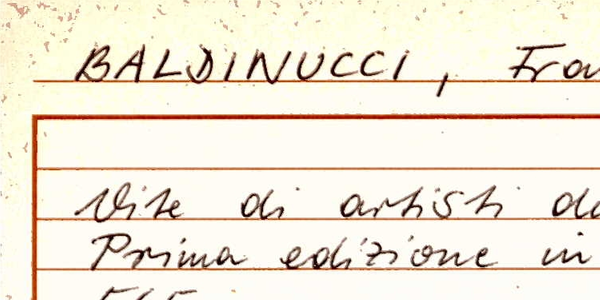 BALDINUCCI, Fra
Vite di artisti d
Prima edizione in